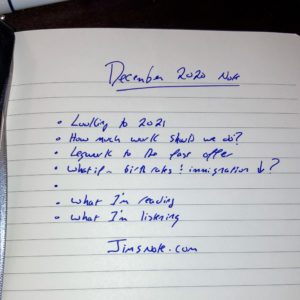 December 2020 Note
• Looking to 2021
• How much work should we do?
• Legwork to the offer
• what if - birth rates & immigration ↓?
•
• what I'm reading
• what I'm listening
JimsNote.com